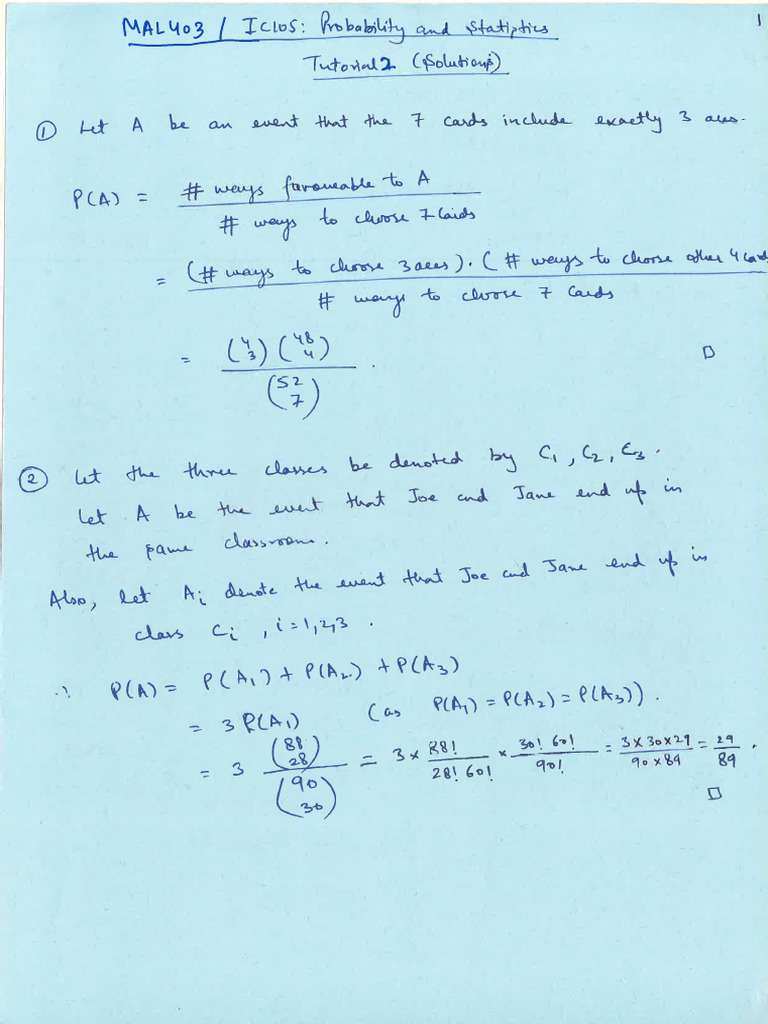 MAL403 / IC105: Probability and Statistics
1
Tutorial 2 (Solutions)
① Let A be an event that the 7 cards include exactly 3 aces.
P(A) = # ways favourable to A / # ways to choose 7 Cards
= (# ways to choose 3 aces) . (# ways to choose other 4 cards / # ways to choose 7 Cards
= (4 3) (48 4) / (52 7) . □
② Let the three classes be denoted by C₁, C₂, C₃.
Let A be the event that Joe and Jane end up in
the same classroom.
Also, let Aᵢ denote the event that Joe and Jane end up in
class Cᵢ, i = 1,2,3.
∴ P(A) = P(A₁) + P(A₂) + P(A₃)
= 3 P(A₁) (as P(A₁) = P(A₂) = P(A₃)).
= 3 (88 28) / (90 30) = 3 × 88! / 28! 60! × 30! 60! / 90! = 3 × 30 × 29 / 90 × 89 = 29 / 89 .
□